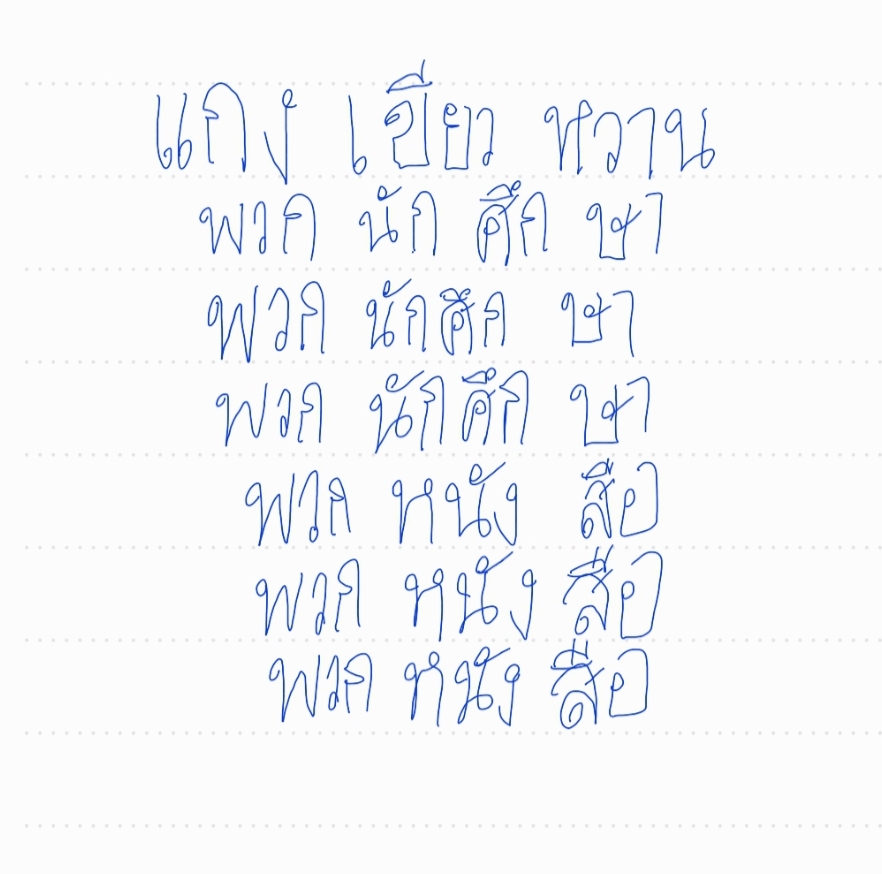 แกง เขียว หวาน
พวก นัก ศึก ษา
พวก นักศึก ษา
พวก นักศึก ษา
พวก หนัง สือ
พวก หนัง สือ
พวก หนัง สือ